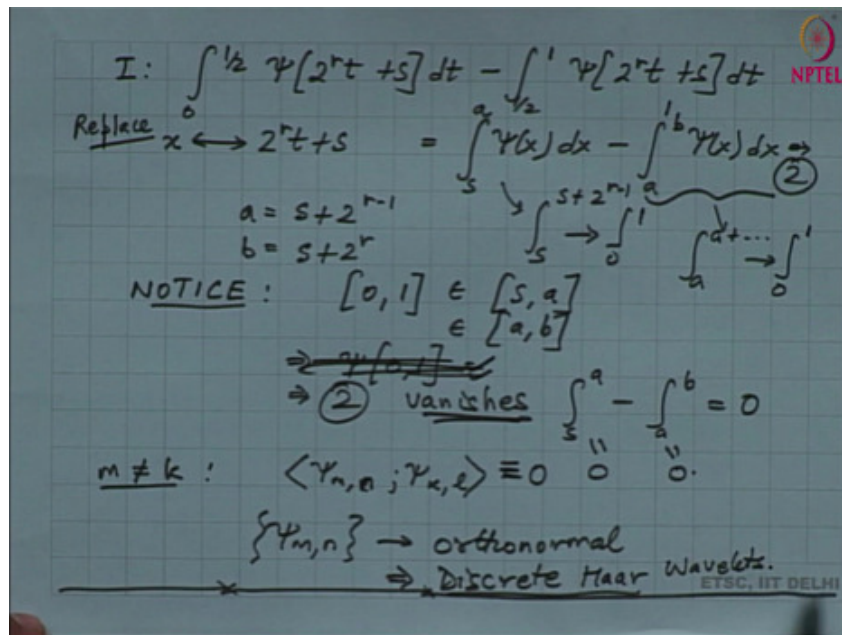 I: ∫₀^{1/2} Ψ[2^r t + s] dt − ∫_{1/2}^1 Ψ[2^r t + s] dt
NPTEL
Replace x ↔ 2^r t + s = ∫_s^a Ψ(x) dx − ∫_a^b Ψ(x) dx → ②
a = s + 2^{r-1} ∫_s^{s+2^{r-1}} → ∫₀^1 ∫_a^{a+...} → ∫₀^1
b = s + 2^r
NOTICE : [0,1] ∈ [s,a]
∈ [a,b]
⇒ ② vanishes ∫_s^a − ∫_a^b = 0
m ≠ k : ⟨Ψ_{m,n} ; Ψ_{k,l}⟩ ≡ 0 0 0.
{Ψ_{m,n}} → orthonormal
⇒ Discrete Haar Wavelets.
ETSC, IIT DELHI